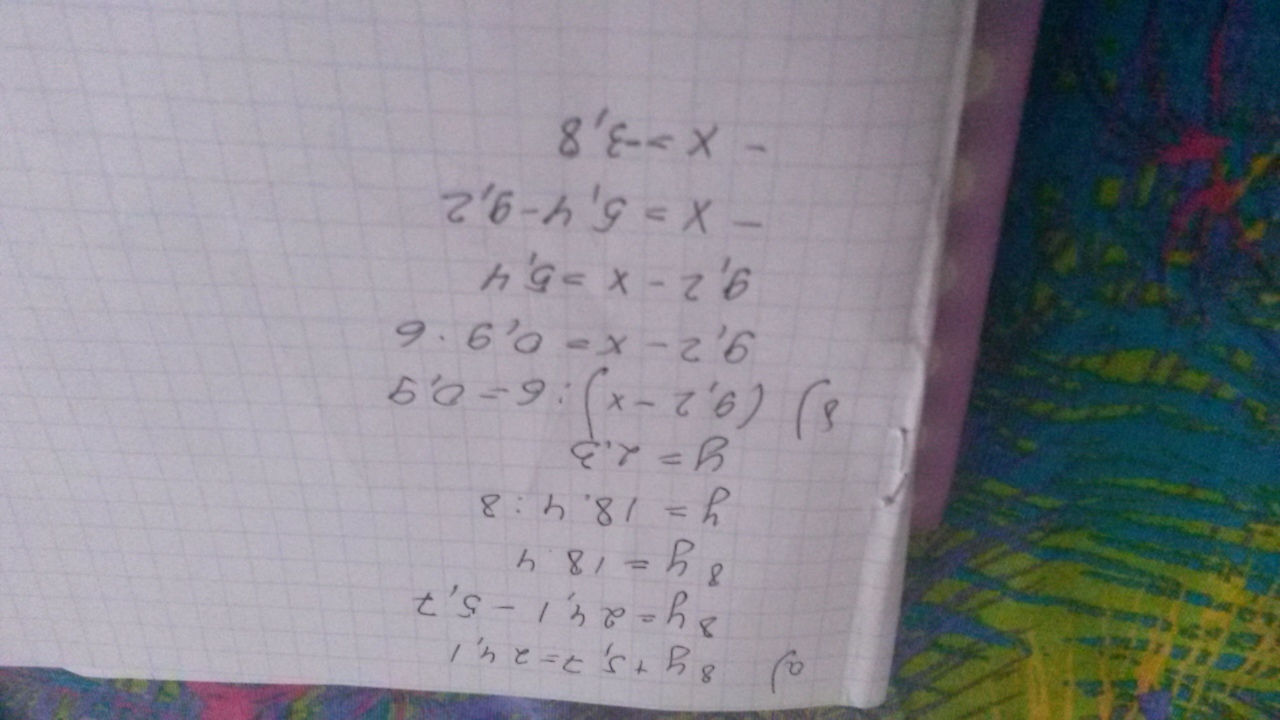 а) 8y+5,7=24,1
8y=24,1-5,7
8y=18.4
y=18.4:8
y=2,3
б) (9,2-x):6=0,9
9,2-x=0,9·6
9,2-x=5,4
-x=5,4-9,2
-x=-3,8